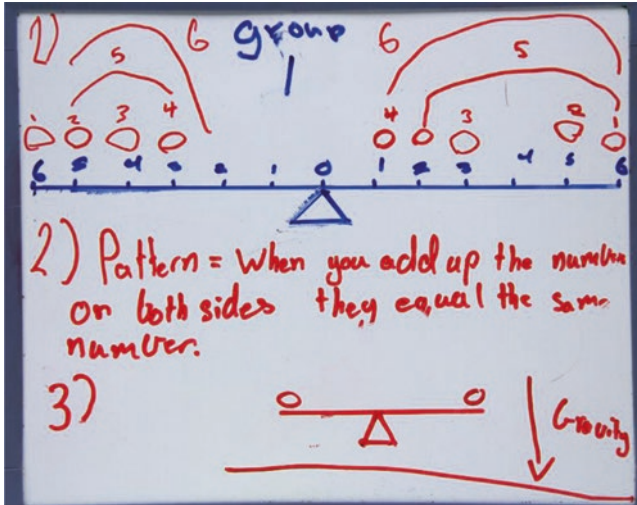 1) 5 6 group 6 5
1
1 2 3 4 4 3 2 1
6 5 4 3 2 1 0 1 2 3 4 5 6
2) Pattern = When you add up the number
on both sides they equal the same
number.
3)
Gravity